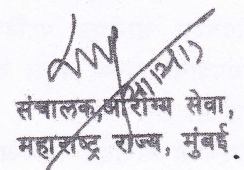 संचालक,आरोग्य सेवा,
महाराष्ट्र राज्य, मुंबई.